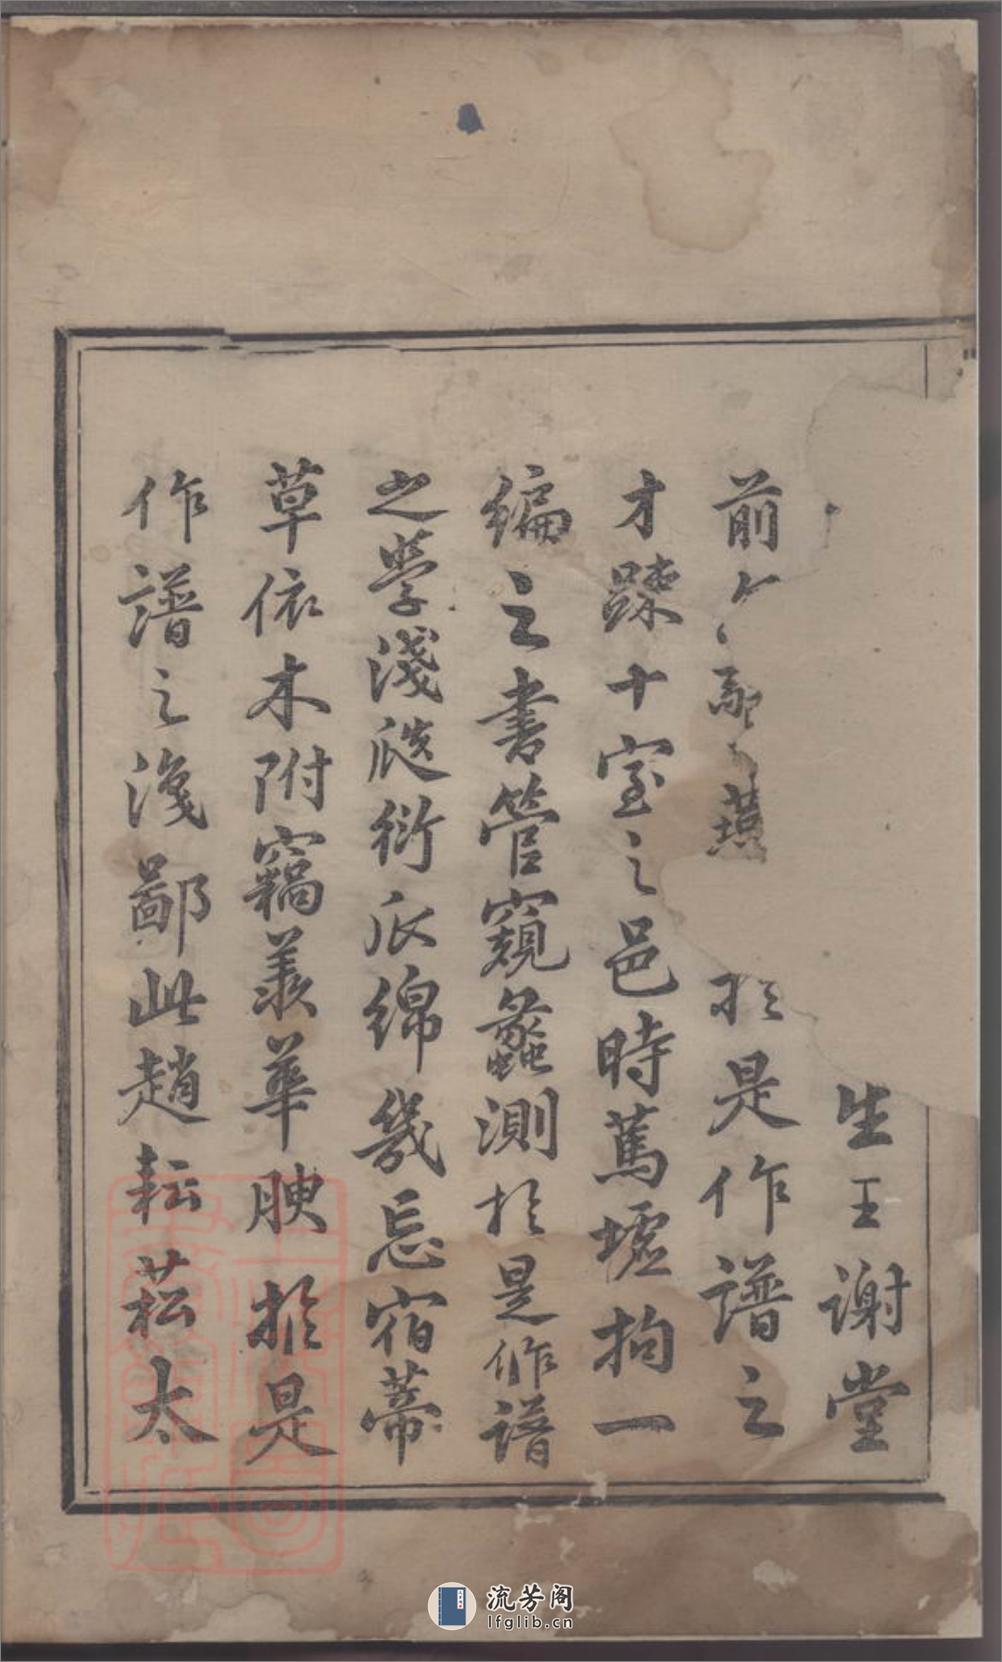 生王謝堂
前 燕 於是作譜之
才踈十室之邑時篤墟拘一
編之書管窺蠡測於是作譜
之學淺瓞衍瓜綿幾忘宿蒂
草依木附竊羨華腴於是
作譜之淺鄙此趙耘菘太
流芳阁
lfglib.cn